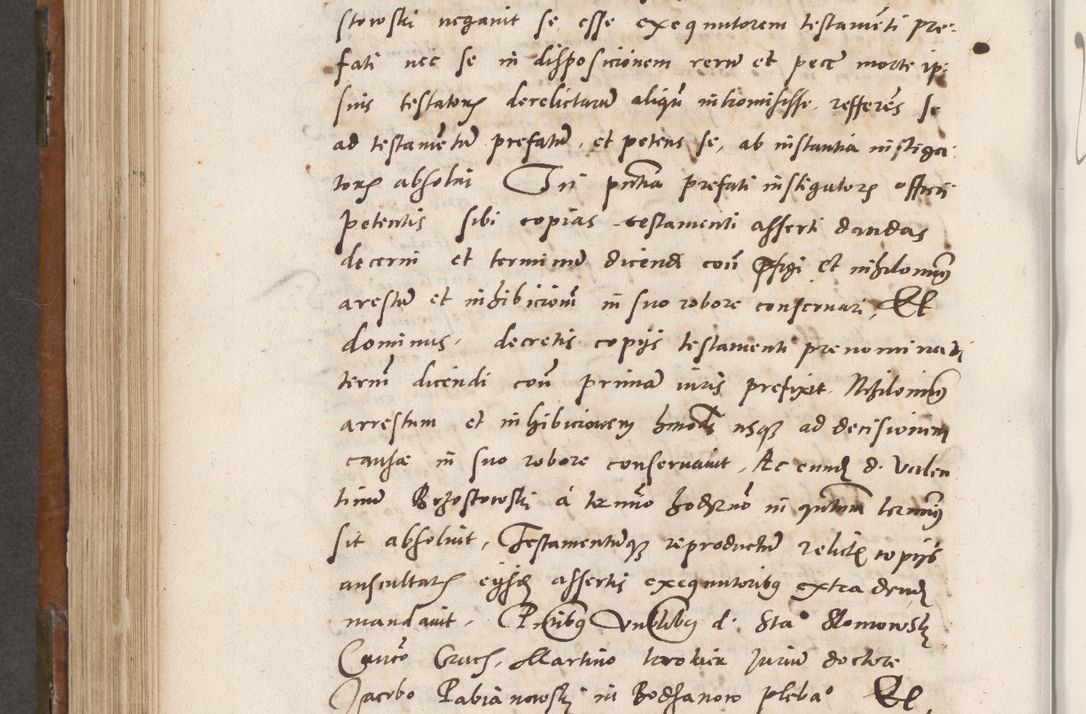 stowski negavit se esse exequutorem testamēti pre:
fati nec se in disposicionem rerū et pecē morte ip:
sius testatoris derelictarū aliqū intromisisse, refferēs se
ad testamētū prefatū, et petens se, ab instantia instiga:
toris absolvi In pntia prefati instigatoris officii
petentis sibi copias testamenti asserti dandas
decerni et terminū dicendi coñ pfigi et nihilominus
arestū et inhibicionē in suo robore conservari, Et
dominus, decretis copijs testamenti prenominati
termī dicendi coñ primā iuris prefixit. Nihilominus
arrestum et inhibicionem hmodi usque ad decisionem
causæ in suo robore conservavit, Ac eundem d. Valen
tinū Brzostowski à termīo hodierno in quātum terminus
sit absolvit, Testamentumque reproductū relictis copijs
auscultatis eijsdem assertis exequutoribus extradendum
mandavit. Pntibus Venlibus d. Sta° Slomowski
Canco Crac, Martino Iurium doctore
Jacobo Pabianowski in Bodzanow pleba° Et